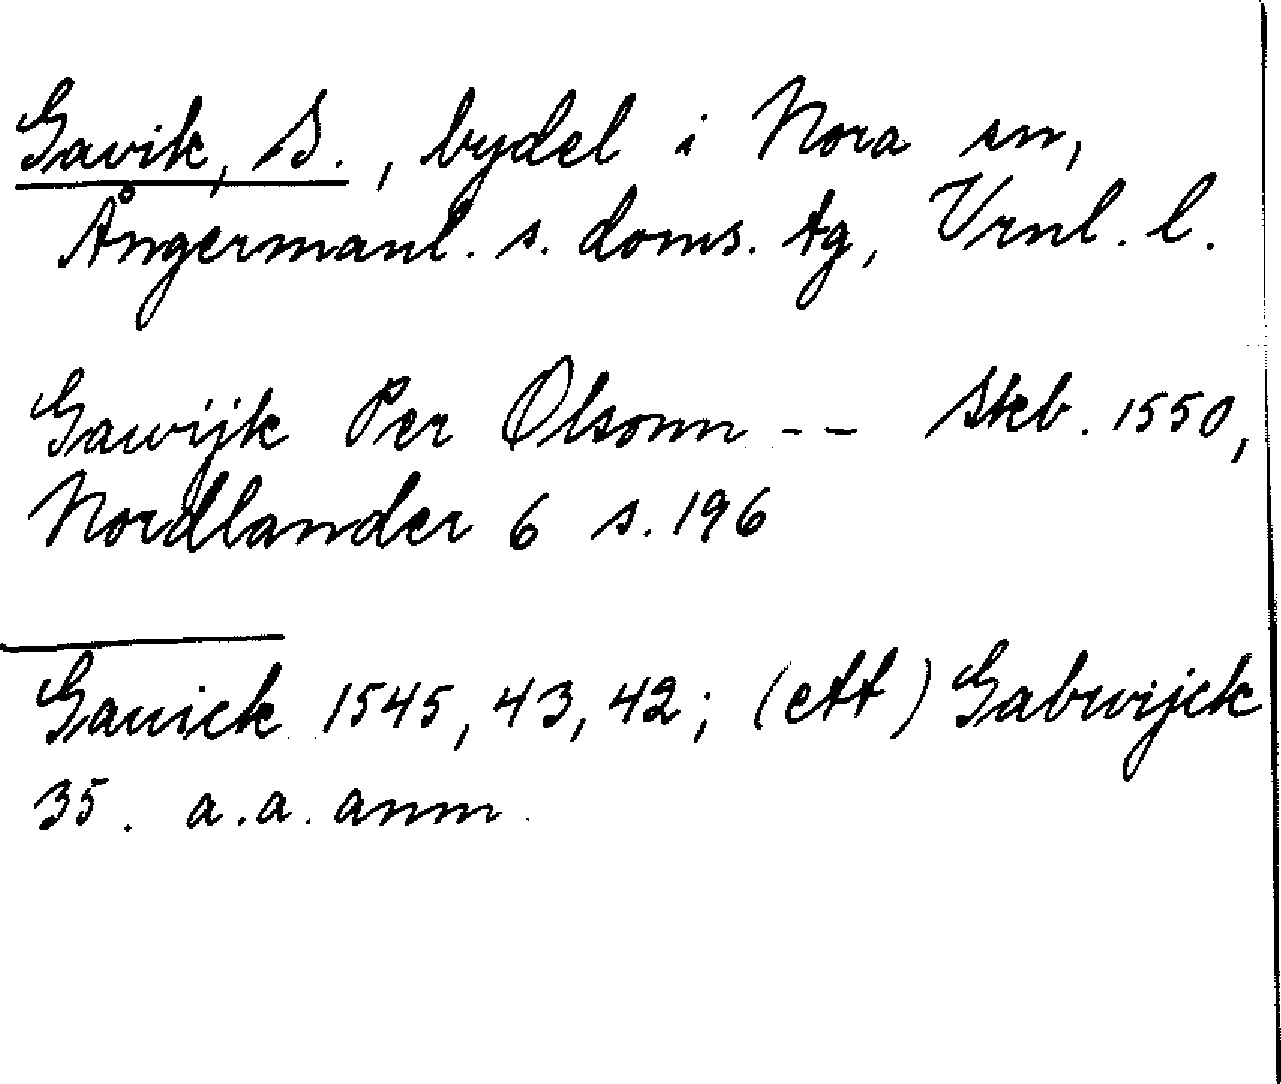 Gavik, S., bydel i Nora sn,
Ångermanl. s. doms. tg, Vrnl. l.
Gawijk Per Olsonn -- Skb. 1550,
Nordlander 6 s. 196
Gauick 1545, 43, 42; (ett) Gabwijck
35. a.a. anm.